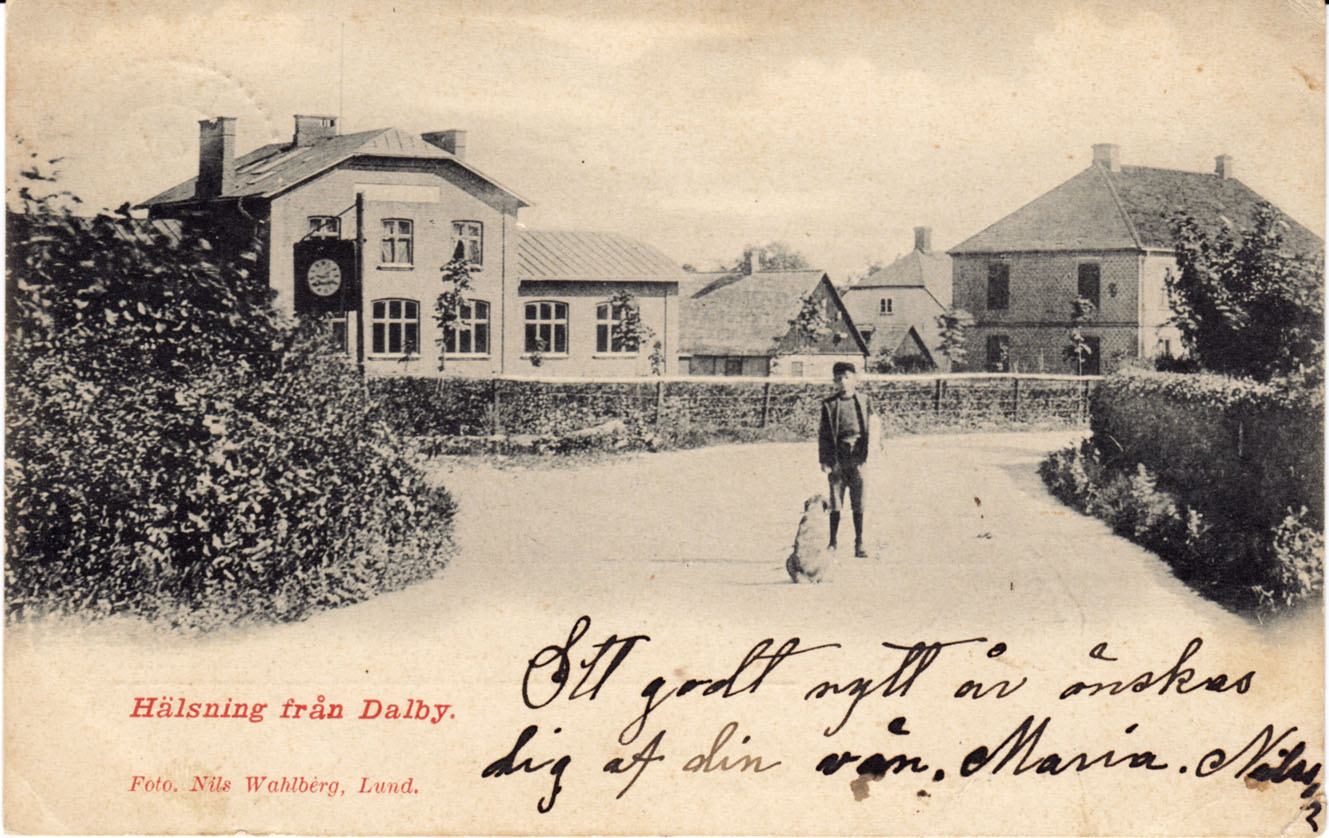 Hälsning från Dalby.
Foto. Nils Wahlbèrg, Lund.
Ett godt nytt år önskas
dig af din vän. Maria. Nils